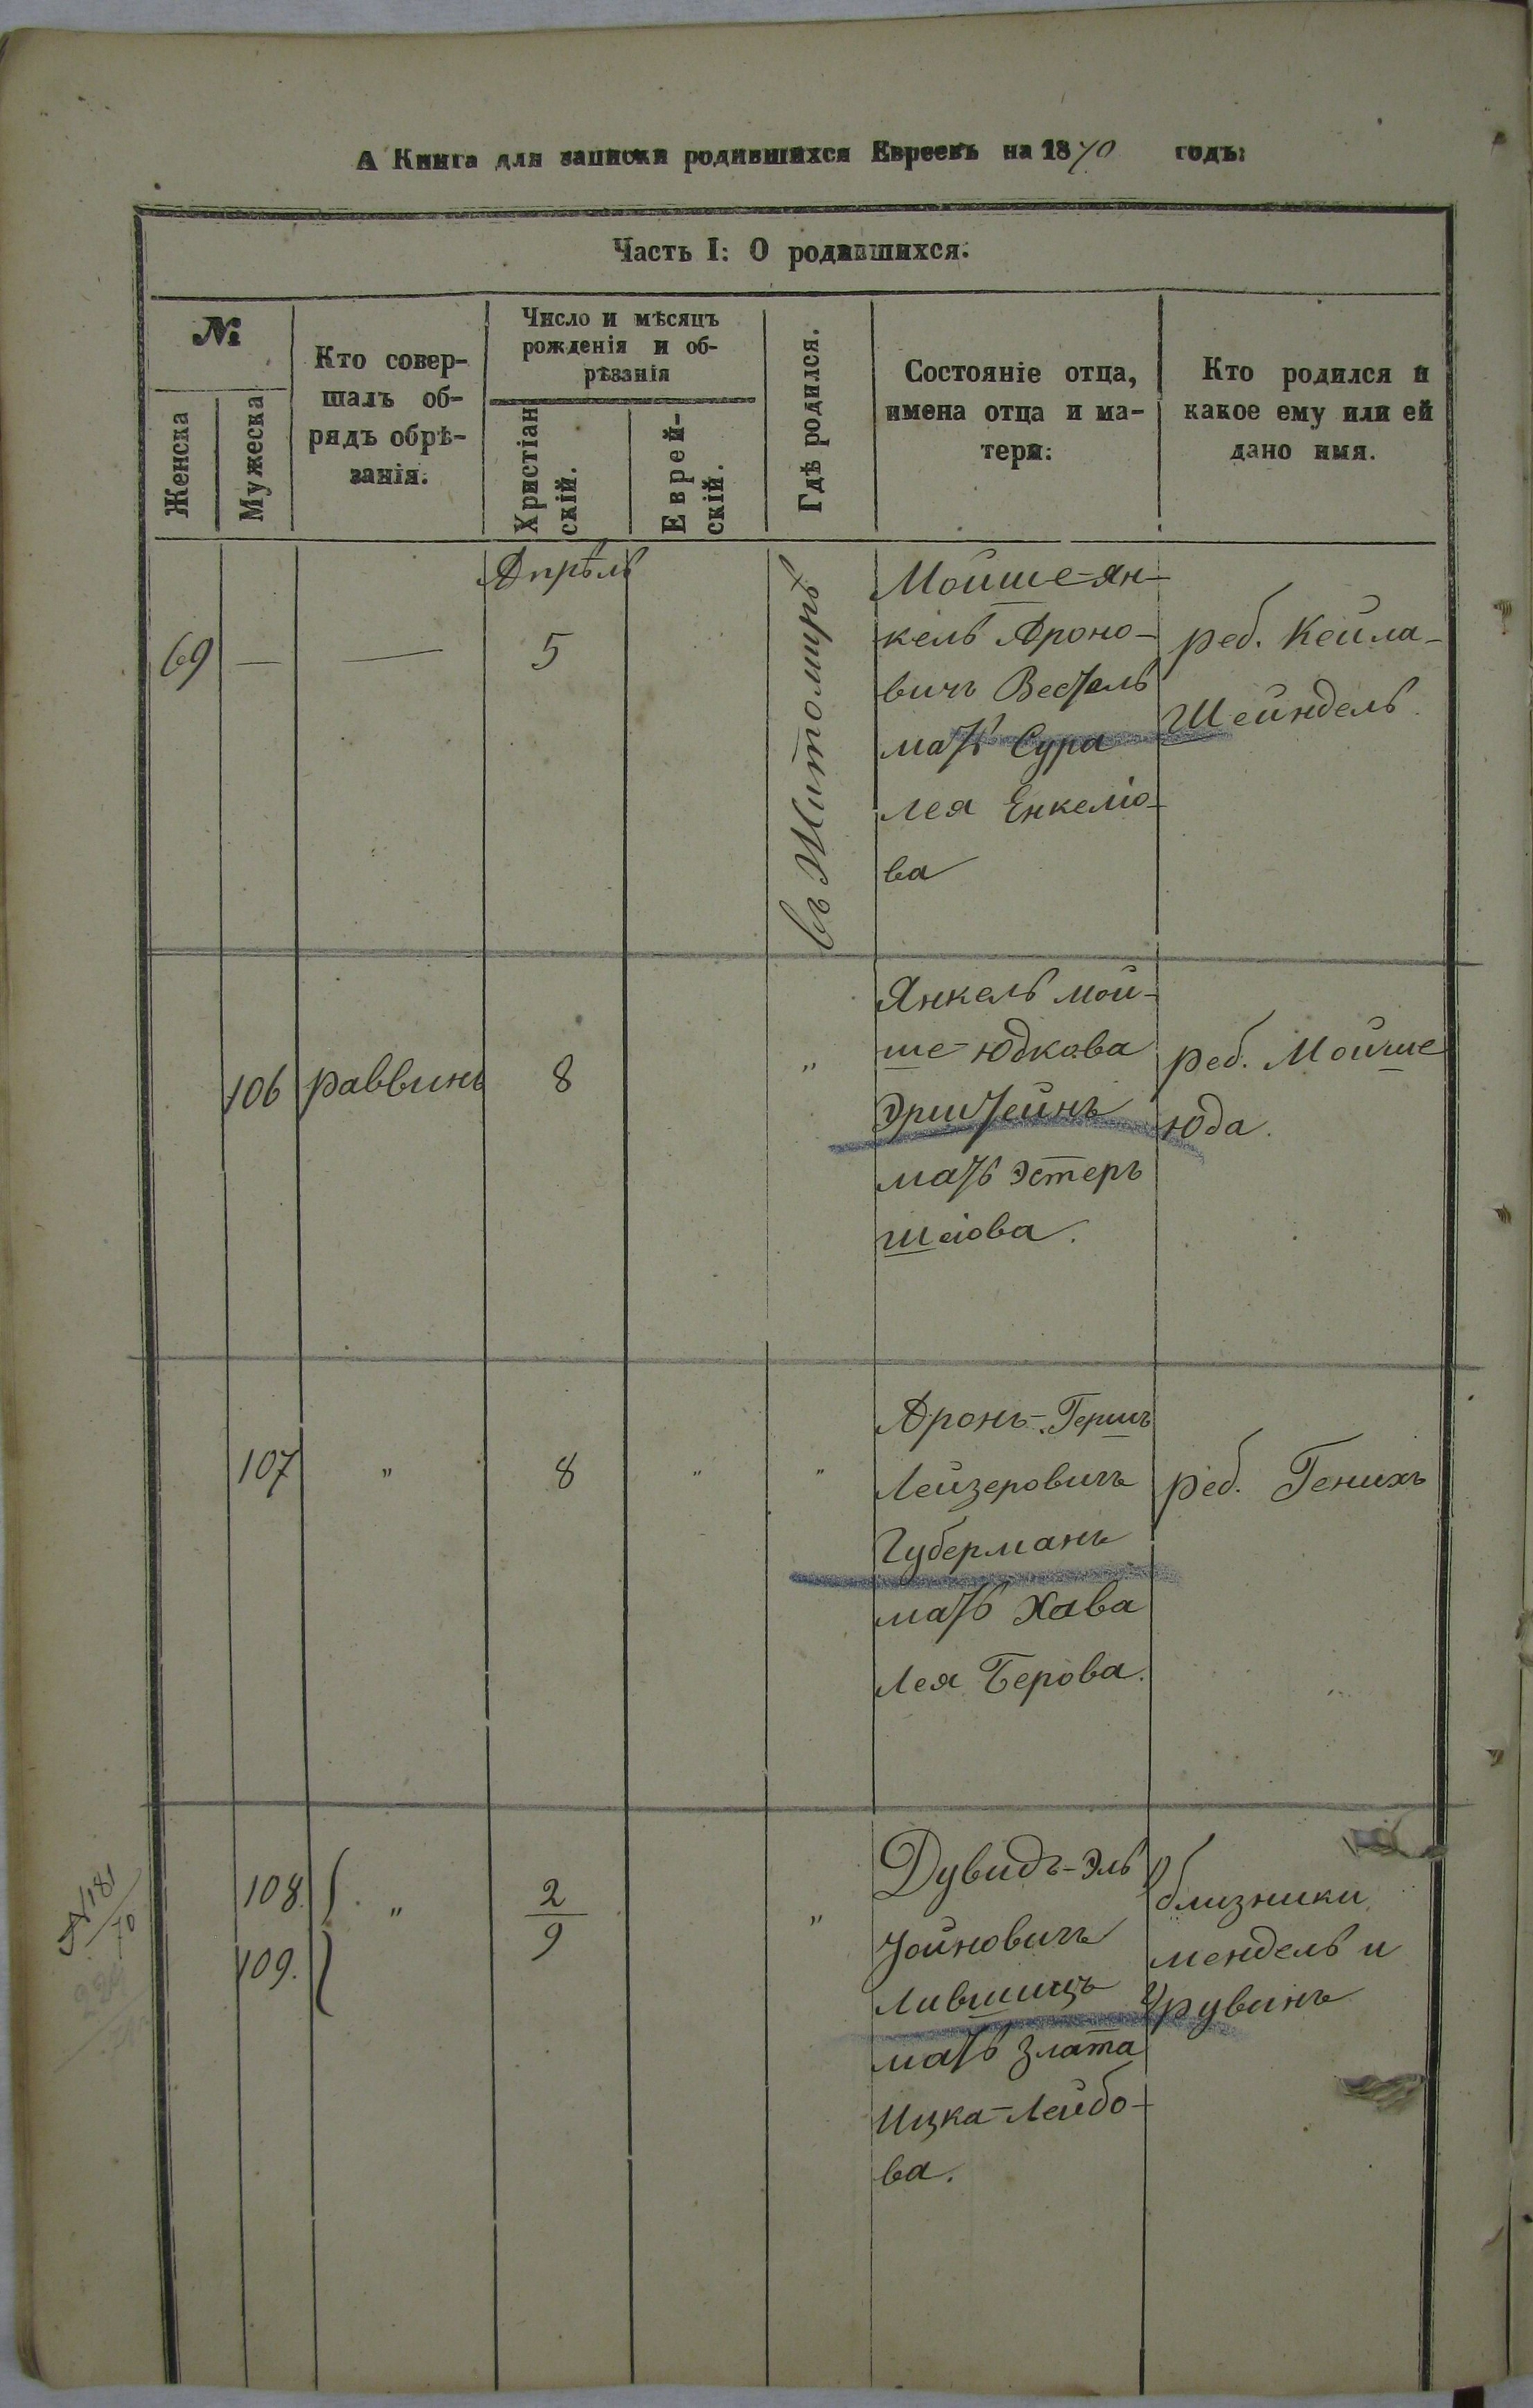 А Книга для записки родившихся Евреевъ на 1870 годъ:
Часть I: О родившихся.
№
Женска
Мужеска
Кто совер-
шалъ об-
рядъ обрѣ-
занія.
Число и мѣсяцъ
рожденія и об-
рѣзанія
Христіан
скій.
Еврей-
скій.
Гдѣ родился.
Состояніе отца,
имена отца и ма-
тери:
Кто родился и
какое ему или ей
дано имя.
Апрѣль
69 — — 5
въ Житомирѣ
Мойше-Ян-
кель Ароно-
вичъ
мать Сура
лея Енкеліо-
ва
реб. Кейла-
Шейндель.
106 раввинъ 8 „
Янкель Мой-
ше-Юдкова
Эрштейнъ
мать Эстеръ
реб. Мойше
Юда.
107 „ 8 „ „
Аронъ-Гершъ
Лейзеровичъ
Губерманъ
мать Хава
Лея Берова.
реб. Генихъ
108.
109.
„
2
9
„
Дувидъ-Эль
Хойновичъ
Лившицъ
мать Злата
Ицка-Лейбо-
ва.
близники
мендель и
рувинъ
181
70